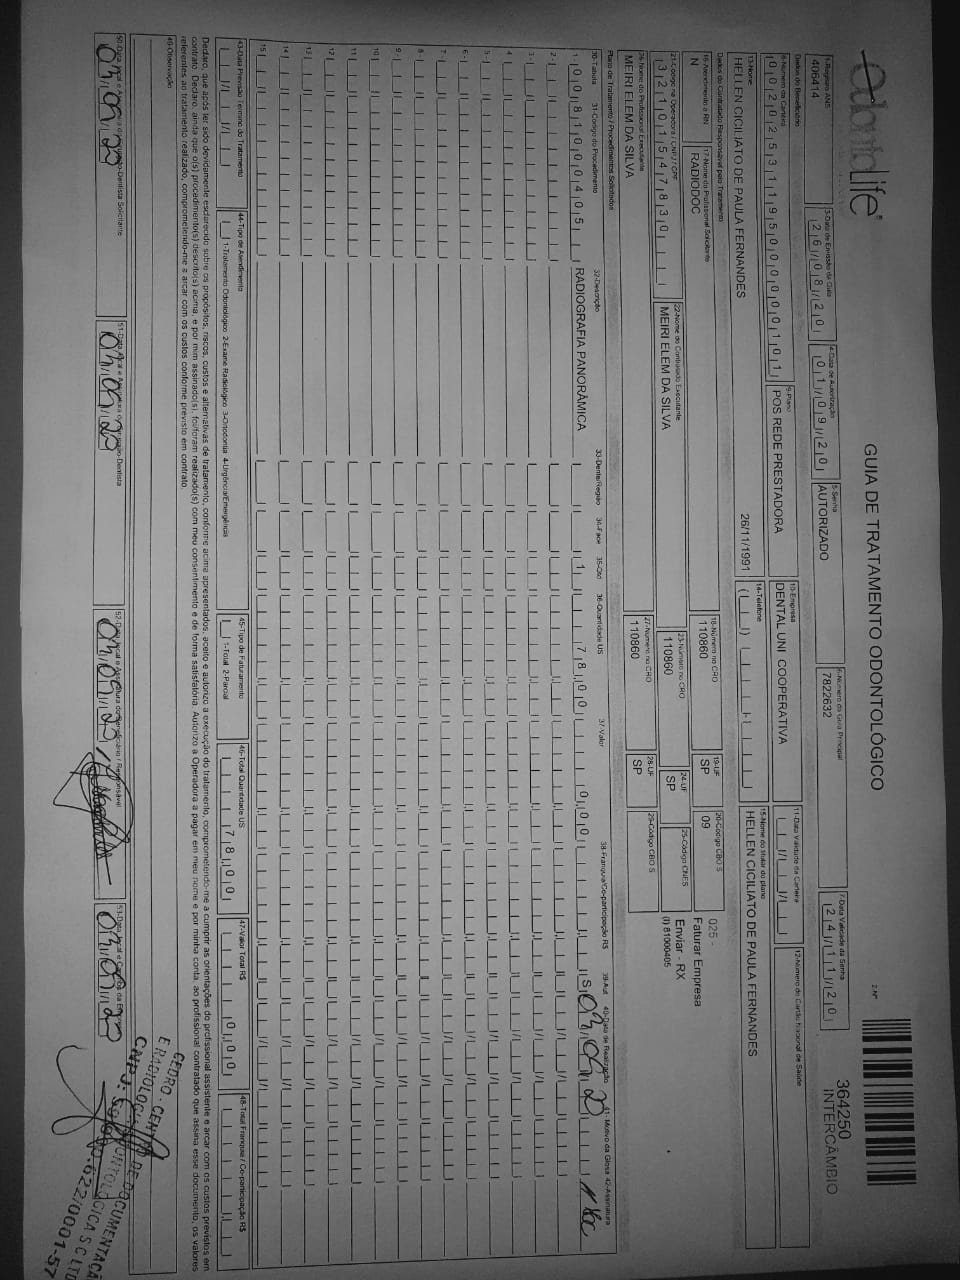 OdontoLife
GUIA DE TRATAMENTO ODONTOLÓGICO
2-Nº
364250
INTERCÂMBIO
1-Registro ANS
406414
3-Data de Emissão da Guia
26/08/20
4-Data de Autorização
01/09/20
5-Senha
AUTORIZADO
6-Número da Guia Principal
7822632
7-Data Validade da Senha
24/11/20
Dados do Beneficiário
8-Número da Carteira
00202531195000000101
9-Plano
POS REDE PRESTADORA
10-Empresa
DENTAL UNI COOPERATIVA
11-Data Validade da Carteira
12-Número do Cartão Nacional de Saúde
13-Nome
HELLEN CICILIATO DE PAULA FERNANDES
26/11/1991
14-Telefone
15-Nome do titular do plano
HELLEN CICILIATO DE PAULA FERNANDES
Dados do Contratado Responsável pelo Tratamento
16-Atendimento a RN
N
17-Nome do Profissional Solicitante
RADIODOC
18-Número no CRO
110860
19-UF
SP
20-Código CBO S
09
025 -
Faturar Empresa
Enviar - RX
(I) 81000405
21-Código na Operadora / CNPJ / CPF
32101547830
22-Nome do Contratado Executante
MEIRI ELEM DA SILVA
23-Número no CRO
110860
24-UF
SP
25-Código CNES
26-Nome do Profissional Executante
MEIRI ELEM DA SILVA
27-Número no CRO
110860
28-UF
SP
29-Código CBO S
Plano de Tratamento / Procedimentos Solicitados
30-Tabela 31-Código do Procedimento 32-Descrição 33-Dente/Região 34-Face 35-Qtd 36-Quantidade US 37-Valor 38-Franquia/Co-participação R$ 39-Aut 40-Data de Realização 41-Motivo da Glosa 42-Assinatura
1- 00 81000405 RADIOGRAFIA PANORÂMICA 1 78,00 0,00 S
2-
3-
4
5-
6-
7-
8-
9-
10
11
12
13
14
15
43-Data Previsão Término do Tratamento
44-Tipo de Atendimento
1-Tratamento Odontológico 2-Exame Radiológico 3-Ortodontia 4-Urgência/Emergência
45-Tipo de Faturamento
1-Total 2-Parcial
46-Total Quantidade US
78,00
47-Valor Total R$
0,00
48-Total Franquia / Co-participação R$
Declaro, que após ter sido devidamente esclarecido sobre os propósitos, riscos, custos e alternativas de tratamento, conforme acima apresentados, aceito e autorizo a execução do tratamento, comprometendo-me a cumprir as orientações do profissional assistente e arcar com os custos previstos em
contrato. Declaro, ainda que o(s) procedimento(s) descrito(s) acima, e por mim assinado(s), foi/foram realizado(s) com meu consentimento e de forma satisfatória. Autorizo a Operadora a pagar em meu nome e por minha conta, ao profissional contratado que assina esse documento, os valores
referentes ao tratamento realizado, comprometendo-me a arcar com os custos conforme previsto em contrato.
49-Observação
50-Data, local e Assinatura do Cirurgião-Dentista Solicitante
51-Data, local e Assinatura do Cirurgião-Dentista
52-Data, local e Assinatura do Beneficiário / Responsável
53-Data, local e Carimbo da Empresa
CEDRO - CENTRO DE DOCUMENTAÇÃO
E RADIOLOGIA ODONTOLÓGICA S C LTD